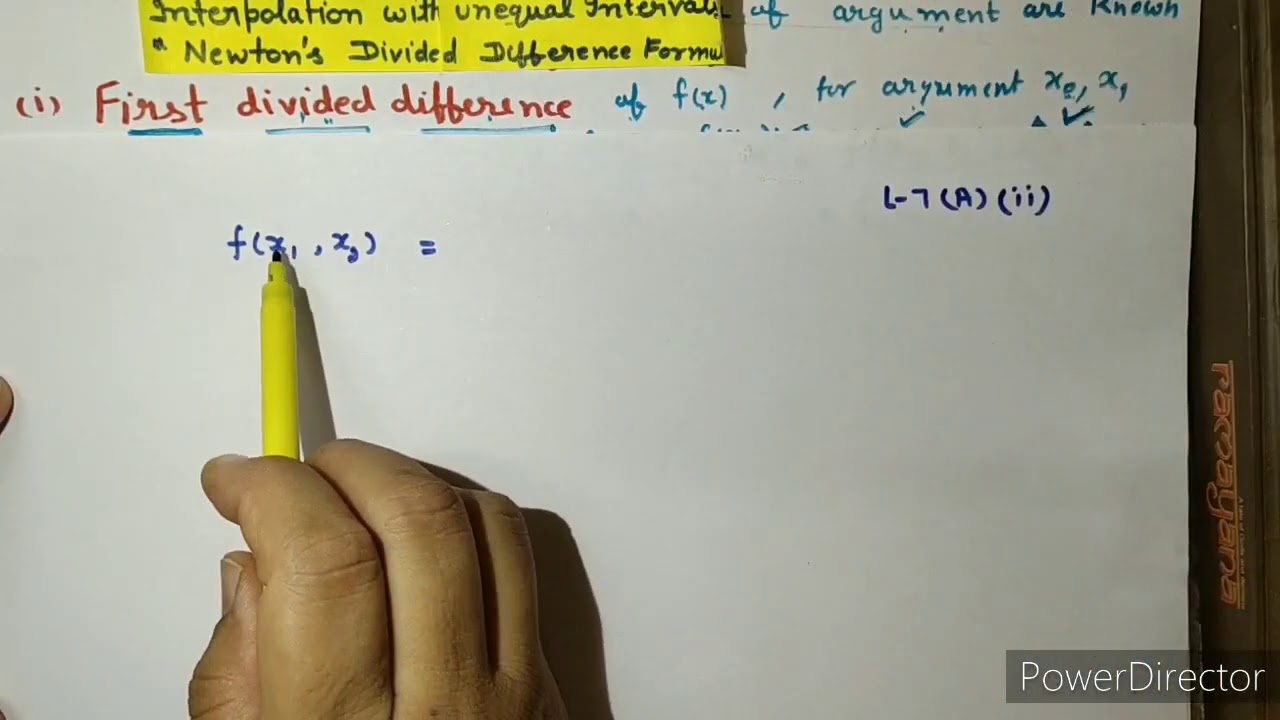 Interpolation with unequal Intervals of argument are Known
* Newton's Divided Difference Formu
(i) First divided difference of f(x) , for argument x₀, x₁
L-7(A)(ii)
f(x₁ , x₂) =
Ramayana
PowerDirector